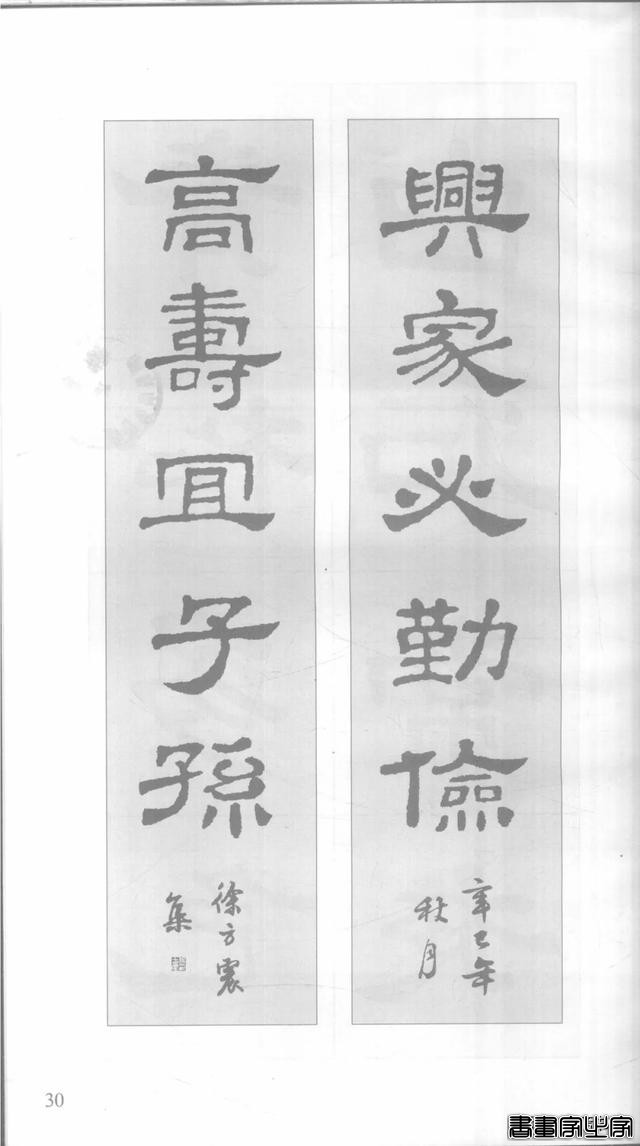 興家必勤儉
辛巳年
秋月
高壽宜子孫
徐方震
集
30
書畫家之家